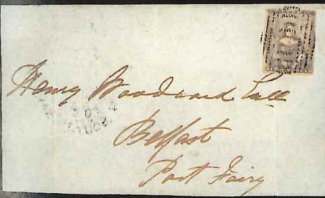 Henry Woodward Esq
Belfast
Port Fairy